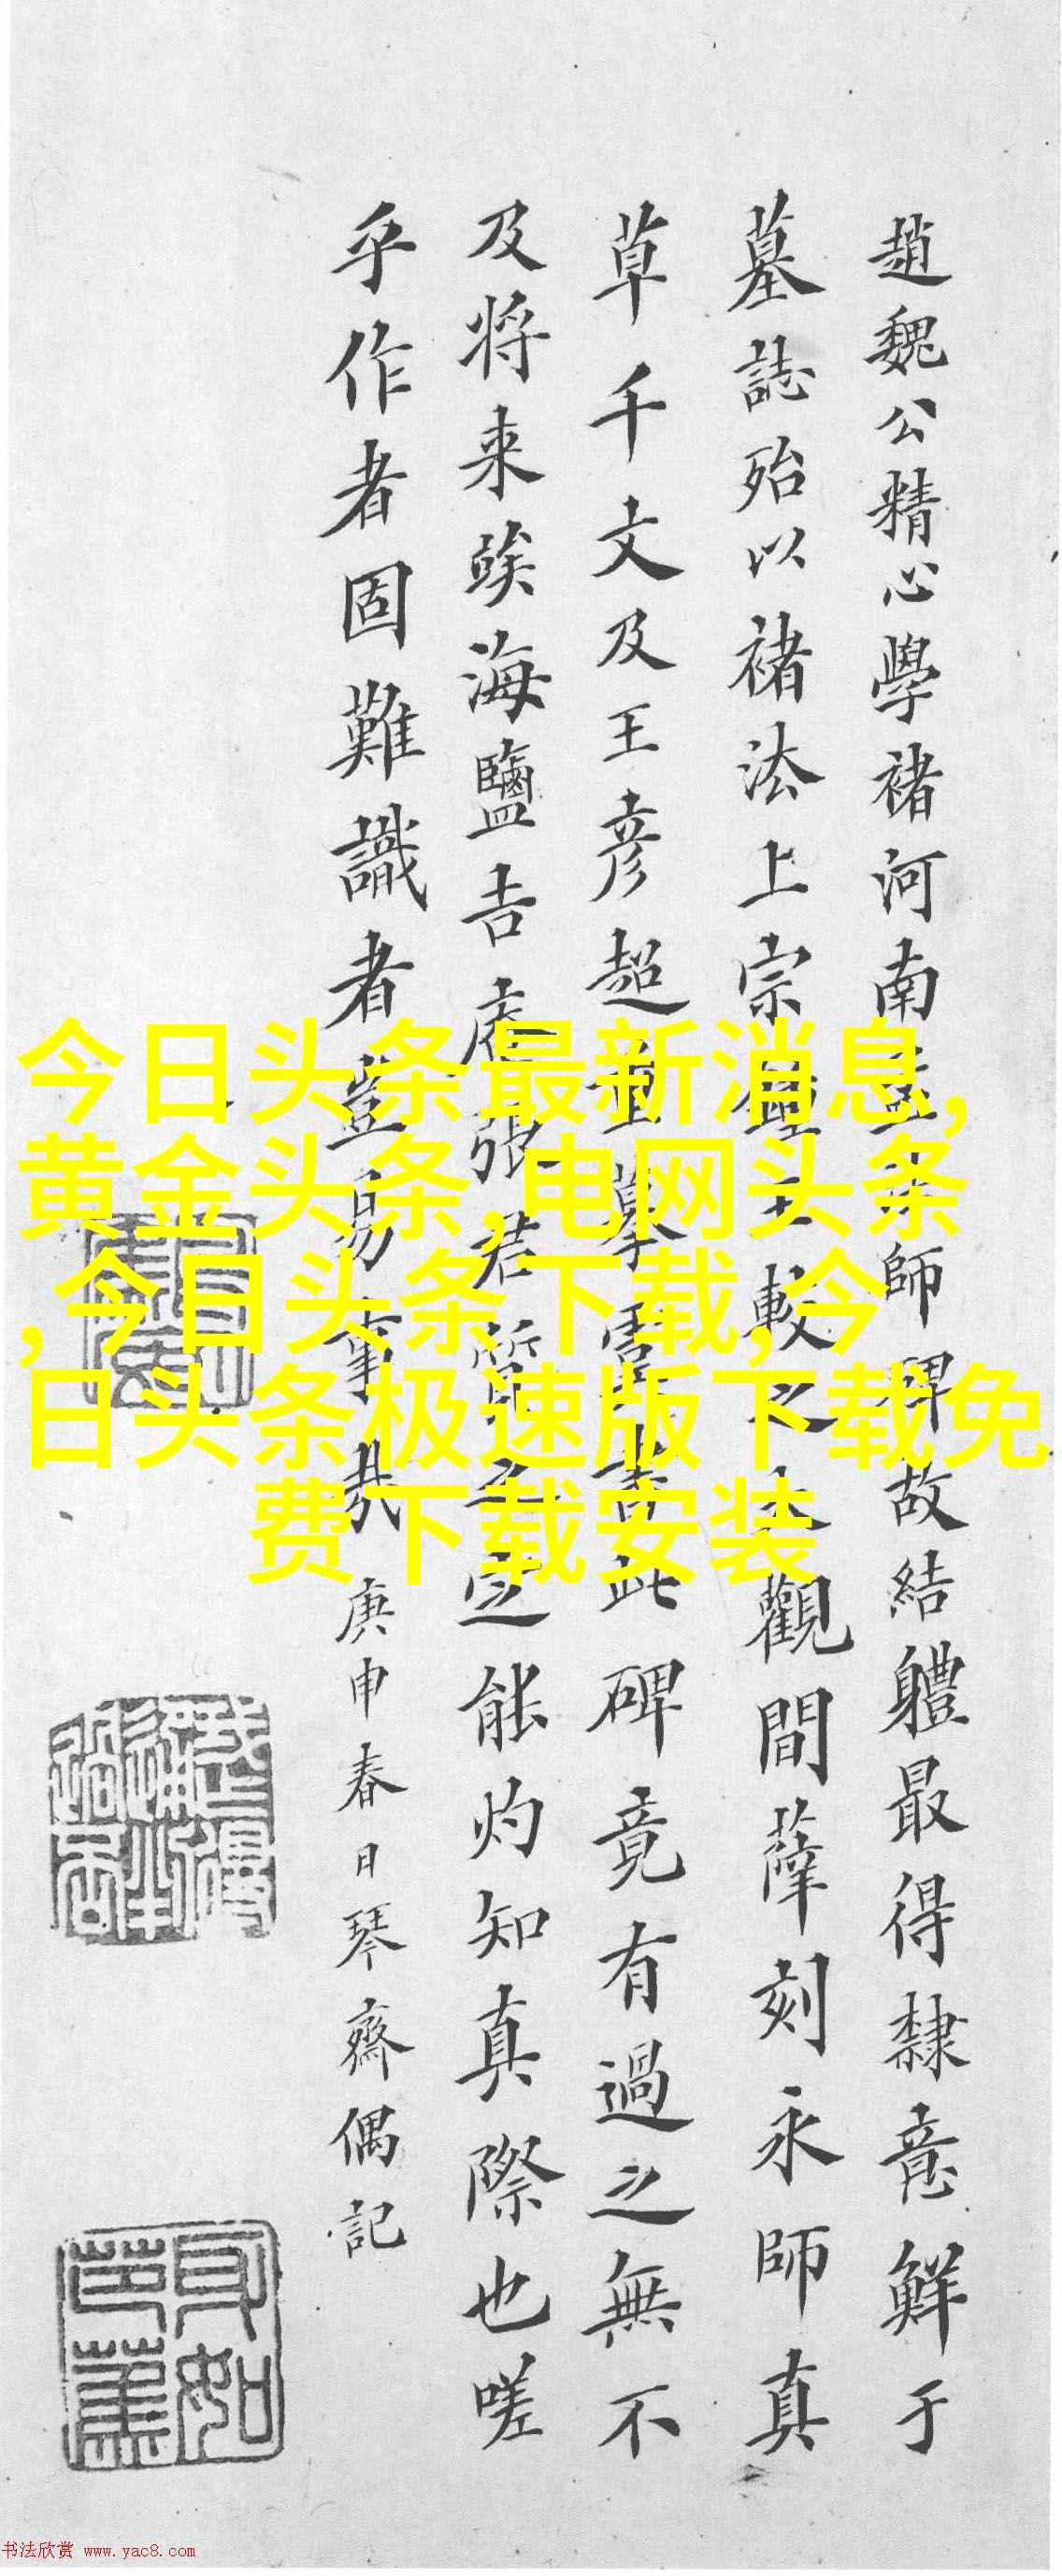 趙魏公精心學褚河南孟法師碑故結軆最得隸意鮮于
墓誌殆以褚法上宗鍾王較之大觀間薛刻永師真
草千文及王彦超重摹虞書此碑竟有過之無不
及将来娭海鹽吉庵張君質正之定能灼知真際也嗟
乎作者固難識者豈易事哉 庚申春日琴齋偶記
今日头条最新消息,
黄金头条,电网头条
,今日头条下载,今
日头条极速版下载免
费下载安装
书法欣赏 www.yac8.com